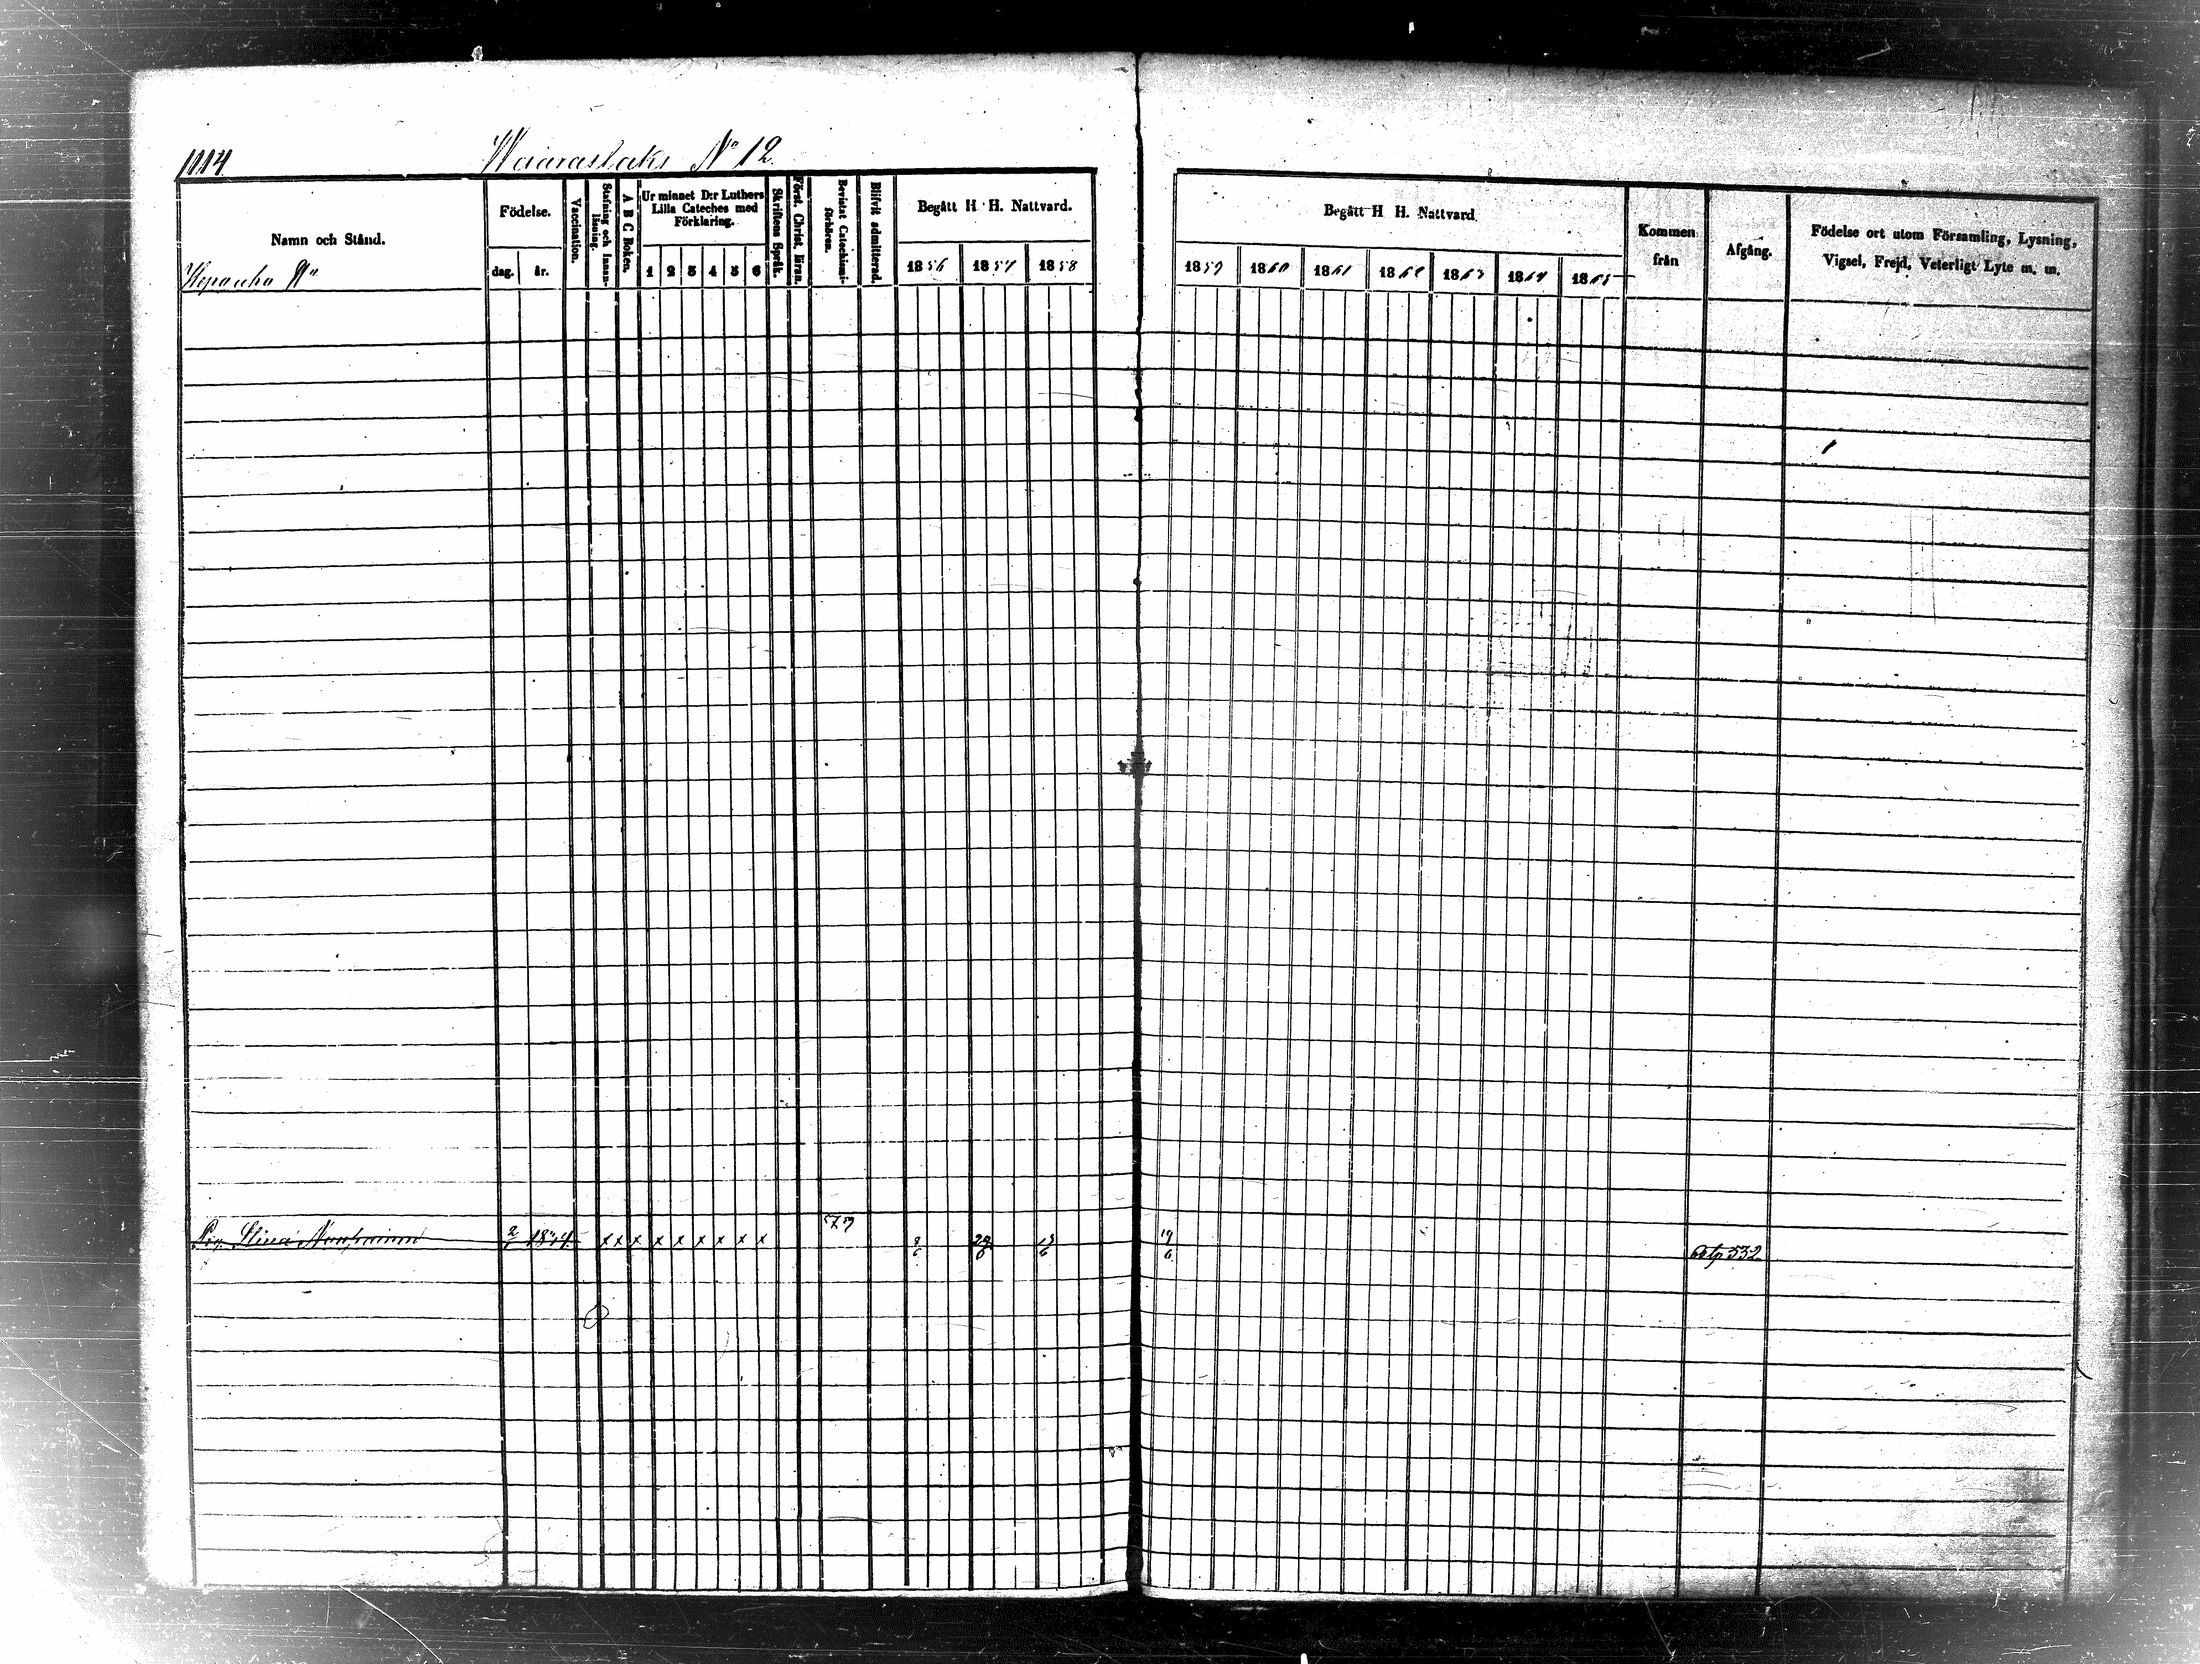 1114 Waaraslaks No 12
Namn och Stånd.
Födelse.
dag. år.
Vaccination.
Stafning och Innanläsning.
A B C Boken.
Ur minnet D:r Luthers Lilla Cateches med Förklaring.
1 2 3 4 5 6
Skriftens Språk.
Först. Christ. läran.
Bevistat Catechismiförhören.
Blifvit admitterad.
Begått H. H. Nattvard.
1856 1857 1858
Begått H. H. Nattvard.
1859 1860 1861 1862 1863 1864 1865
Kommen från
Afgång.
Födelse ort utom Församling, Lysning, Vigsel, Frejd, Veterligt Lyte m. m.
Stina x x x x x x x x x 19/6 532